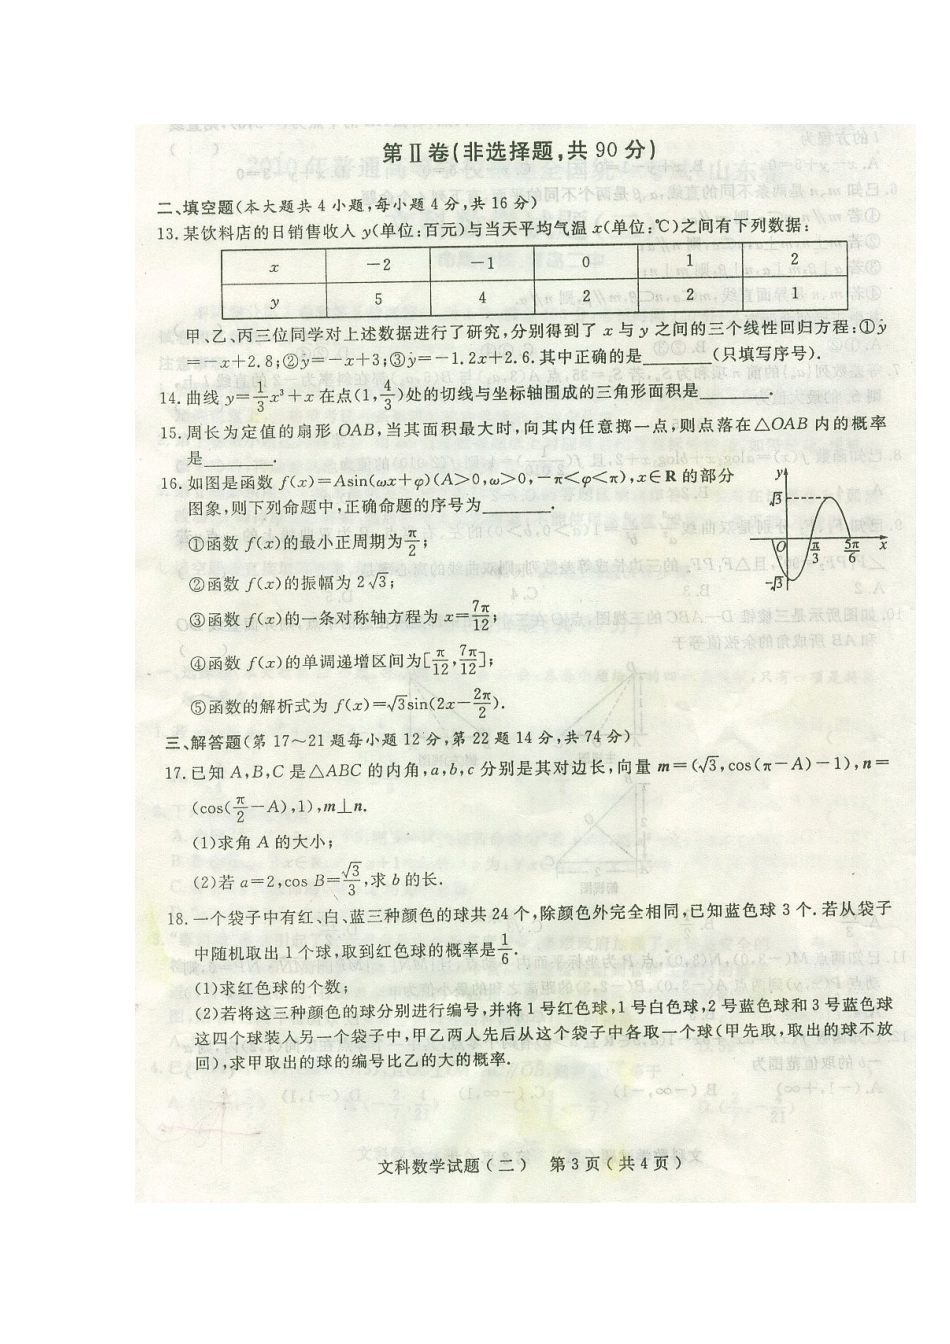 第Ⅱ卷(非选择题,共 90 分)
二、填空题(本大题共 4 小题,每小题 4 分,共 16 分)
13.某饮料店的日销售收入 y(单位:百元)与当天平均气温 x(单位:℃)之间有下列数据:
x -2 -1 0 1 2
y 5 4 2 2 1
甲、乙、丙三位同学对上述数据进行了研究,分别得到了 x 与 y 之间的三个线性回归方程:①ŷ
=-x+2.8;②ŷ=-x+3;③ŷ=-1.2x+2.6.其中正确的是______(只填写序号).
14.曲线 y=1/3x³+x 在点(1,4/3)处的切线与坐标轴围成的三角形面积是______.
15.周长为定值的扇形 OAB,当其面积最大时,向其内任意掷一点,则点落在△OAB 内的概率
是______.
16.如图是函数 f(x)=Asin(ωx+φ)(A>0,ω>0,-π<φ<π),x∈R 的部分
图象,则下列命题中,正确命题的序号为______.
y
√3
O π/3 5π/6 x
-√3
①函数 f(x)的最小正周期为π/2;
②函数 f(x)的振幅为 2√3;
③函数 f(x)的一条对称轴方程为 x=7π/12;
④函数 f(x)的单调递增区间为[π/12,7π/12];
⑤函数的解析式为 f(x)=√3sin(2x-2π/2).
三、解答题(第 17～21 题每小题 12 分,第 22 题 14 分,共 74 分)
17.已知 A,B,C 是△ABC 的内角,a,b,c 分别是其对边长,向量 m=(√3,cos(π-A)-1),n=
(cos(π/2-A),1),m⊥n.
(1)求角 A 的大小;
(2)若 a=2,cos B=√3/3,求 b 的长.
18.一个袋子中有红、白、蓝三种颜色的球共 24 个,除颜色外完全相同,已知蓝色球 3 个.若从袋子
中随机取出 1 个球,取到红色球的概率是1/6.
(1)求红色球的个数;
(2)若将这三种颜色的球分别进行编号,并将 1 号红色球,1 号白色球,2 号蓝色球和 3 号蓝色球
这四个球装入另一个袋子中,甲乙两人先后从这个袋子中各取一个球(甲先取,取出的球不放
回),求甲取出的球的编号比乙的大的概率.
文科数学试题(二) 第 3 页(共 4 页)